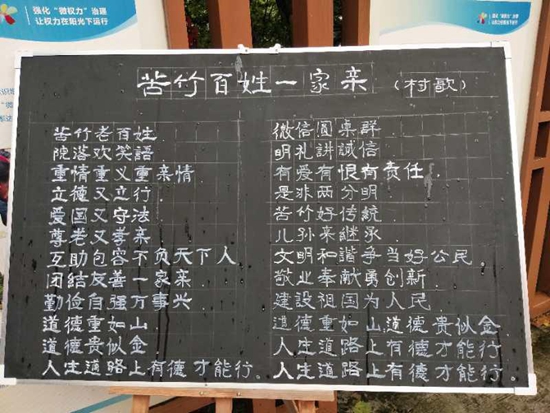 强化“微权力”治理
让权力在阳光下运行
苦竹百姓一家亲（村歌）
苦竹老百姓
院落欢笑語
重情重义重亲情
立德又立行
爱国又守法
尊老又孝亲
互助包容不负天下人
团结友善一家亲
勤俭自强万事兴
道德重如山
道德贵似金
人生道路上有德才能行
微信圆桌群
明礼讲誠信
有爱有恨有责任
是非两分明
苦竹好传統
儿孙来継承
文明和谐争当好公民
敬业奉献勇创新
建設祖国为人民
道德重如山道德贵似金
人生道路上有德才能行
人生道路上有德才能行